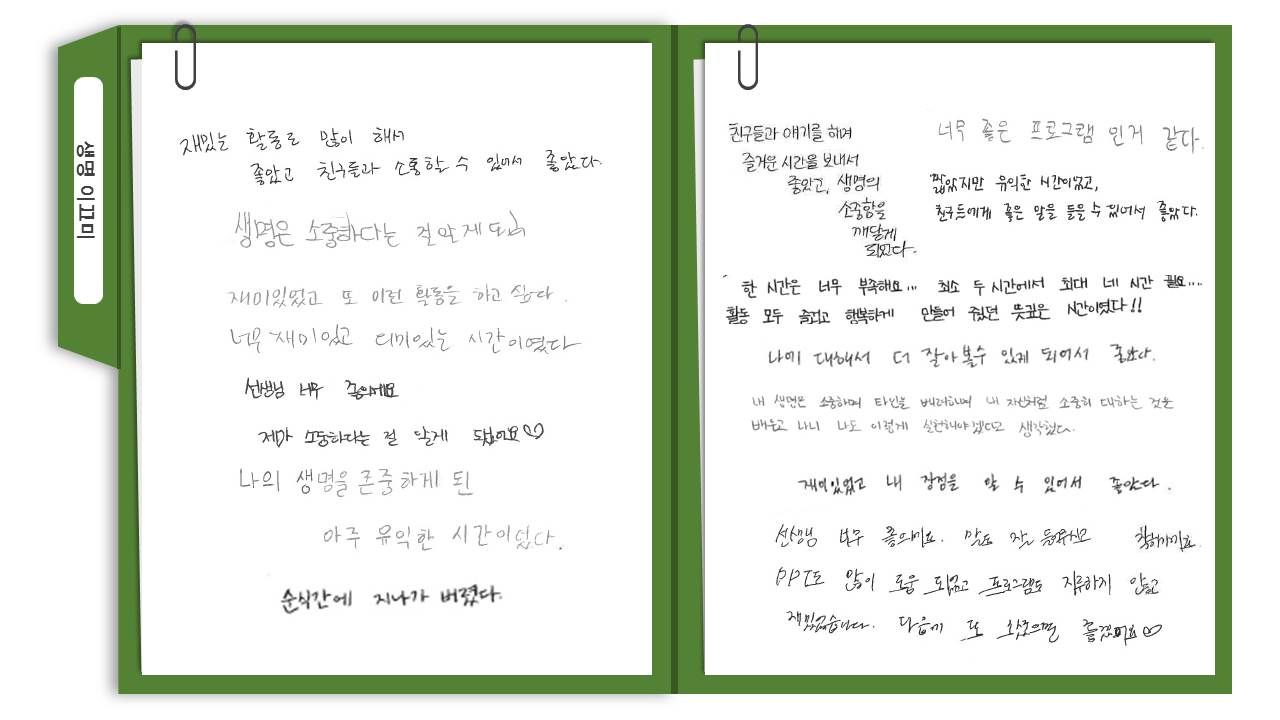 생명 이끄미
재밌는 활동도 많이 해서
좋았고 친구들과 소통할 수 있어서 좋았다.
생명은 소중하다는 걸 알게 되
재미있었고 또 이런 활동을 하고 싶다.
너무 재미있고 의미있는 시간이였다
선생님 너무 좋으세요
제가 소중하다는 걸 알게 됐어요♡
나의 생명을 존중하게 된
아주 유익한 시간이었다.
순식간에 지나가 버렸다.
친구들과 얘기를 하며
즐거운 시간을 보내서
좋았고, 생명의
소중함을
깨닫게
되었다.
너무 좋은 프로그램 인거 같다.
짧았지만 유익한 시간이었고,
친구들에게 좋은 말을 들을 수 있어서 좋았다.
한 시간은 너무 부족해요... 최소 두 시간에서 최대 네 시간 필요....
활동 모두 즐겁고 행복하게 만들어 주었던 뜻깊은 시간이였다!!
나에 대해서 더 잘 알아볼수 있게 되어서 좋았다.
내 생명은 소중하며 타인을 배려하며 내 자신처럼 소중히 대하는 것을
배우고 나니 나도 이렇게 실천해야겠다고 생각했다.
재미있었고 내 장점을 알 수 있어서 좋았다.
선생님 너무 좋으세요. 말도 잘 들어주시고
PPT도 많이 도움 되었고 프로그램도 지루하지 않고
재밌었습니다. 다음에 또 오셨으면 좋겠어요♡